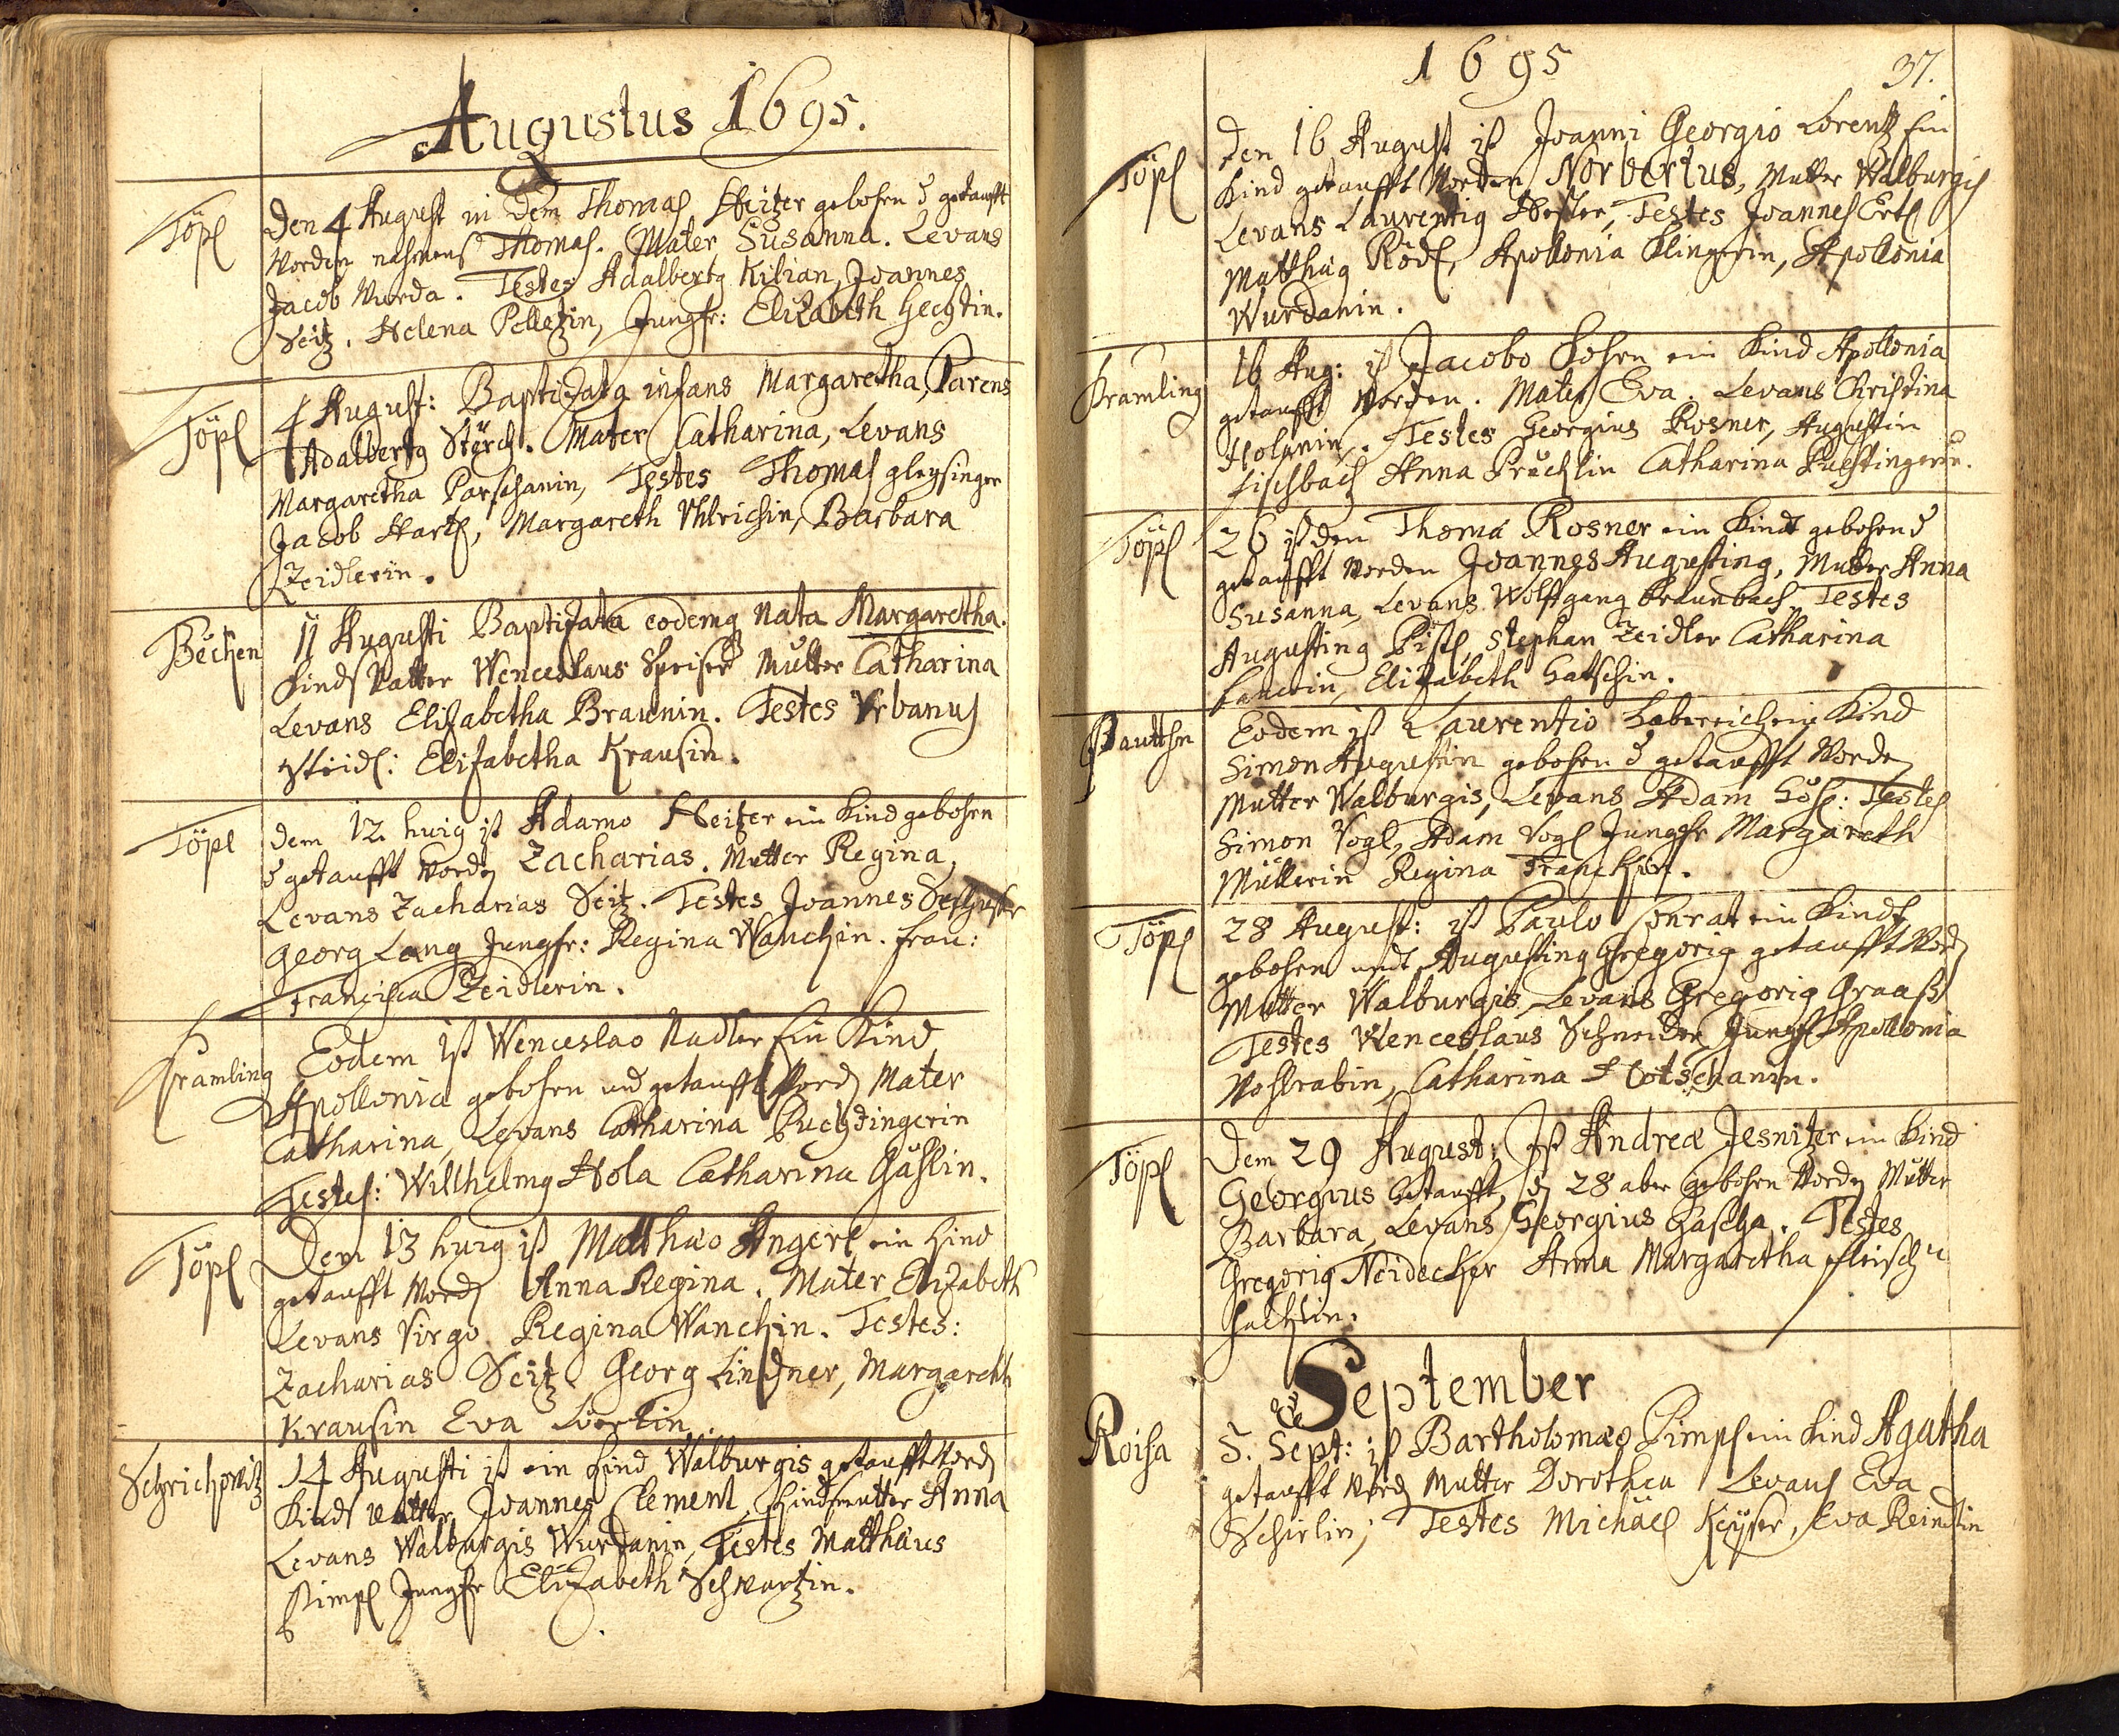 Augustus 1695.
Töpl
Den 4 August in dem Thomas Heitzer gebohrn & getaufft
worden nahmens Thomas. Mater Susanna. Levans
Jacob Wurda. Testes Adalbertg Kilian, Joannes
Seitz. Helena Pelletzin, Jungfr: Elizabeth Hechtin.
Töpl
4 August: Baptizata infans Margaretha, Parens
Adalbertg Störch. Mater Catharina, Levans
Margaretha Parschanin, Testes Thomas gleysinger
Jacob Hartl, Margareth Uhlrichin, Barbara
Zeidlerin.
Béchen
11 Augusti Baptizata eodemq nata Margaretha.
Kinds Vatter Wenceslaus Speiser Mutter Catharina
Levans Elizabetha Braunin. Testes Urbanus
Elizabetha Krausin.
Töpl
dem 12 huig ist Adamo Heitzer ein Kind gebohrn
& getaufft worden Zacharias. Mutter Regina,
Levans Zacharias Seitz. Testes Joannes
Georg Lang Jungfr: Regina Wanchin. Frau:
Francisca Zeidlerin.
Kramling
Eodem ist Wenceslao Nadler Ein Kind
Apollonia gebohrn und getaufft word Mater
Catharina, Levans Catharina Puchdingerin
Testes: Willhelmg Hola Catharina Häslin.
Töpl
Dem 13 hurg ist Matthæo Angerl ein Kind
getaufft word Anna Regina. Mater Elizabeth
Levans Virgo Regina Wanchin. Testes:
Zacharias Seitz Georg Lindner, Margareth
Krausin Eva
Schrichowitz
14 Augusti ist ein Kind Walburgis getaufft word
Kinds Vatter Joannes Clement, Kindsmutter Anna
Levans Walburgis Wurdanin, Testes Matthäus
Pimpl Jungfr Elizabeth Schwartzin.
1695
37.
Töpl
Den 16 August ist Joanni Georgio Lorentz Ein
Kind getaufft worden Norbertus, Mutter Walburgis
Levans Laurentig Testes Joannes Ertl
Matthäg Rödl, Apollonia Klingerin, Apollonia
Wurdanin.
Kramling
16 Aug: ist Jacobo ein Kind Apollonia
getaufft worden. Mater Eva. Levans Christina
Holanin. Testes Georgius Rosner, Augustin
Fischbach Anna Prüchlin Catharina
Töpl
26 ist den Thoma Rosner ein Kindt gebohrn &
getaufft worden Joannes Augusting, Mutter Anna
Susanna, Levans Wolffgang Braunbach Testes
Augusting Pistl, Stephan Zeidler Catharina
Elizabeth Hatschin.
Pauthn
Eodem ist Laurentio Habereich ein Kind
Simon Augustin gebohrn & getaufft worde
Mutter Walburgis, Levans Adam Testes
Simon Vogl, Adam Vogl Jungfr Margareth
Müllerin Regina Franckin.
Töpl
28 August: ist Paulo Conrat ein Kindt
gebohrn undt Augusting Gregorig getaufft word
Mutter Walburgis, Levans Gregorig Graaß
Testes Wenceslaus Schneider Jungf Apollonia
Catharina Hotschanin.
Töpl
Dem 29 August: Ist Andreæ Jesnitzer ein Kind
Georgius Getaufft, d 28 aber gebohrn word Mutter
Barbara, Levans Georgius Gascha. Testes
Gregorig Neidecker Anna Margaretha fleisch-
hackin.
September
Roisa
5. Sept: ist Bartholomæo Pimpl ein Kind Agatha
getaufft word Mutter Dorothea Levans Eva
Schirlin; Testes Michäel Keyser, Eva Reindlin